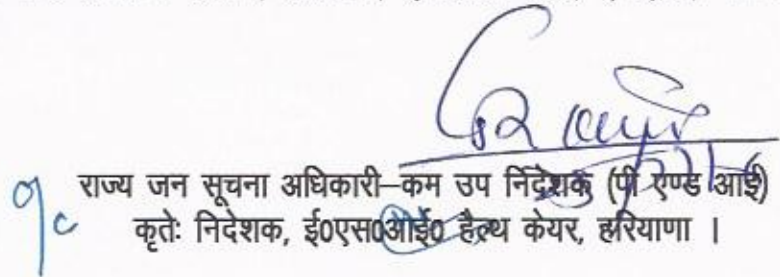 राज्य जन सूचना अधिकारी–कम उप निदेशक (पी एण्ड आई)
कृतेः निदेशक, ई0एस0आई0 हैल्थ केयर, हरियाणा ।